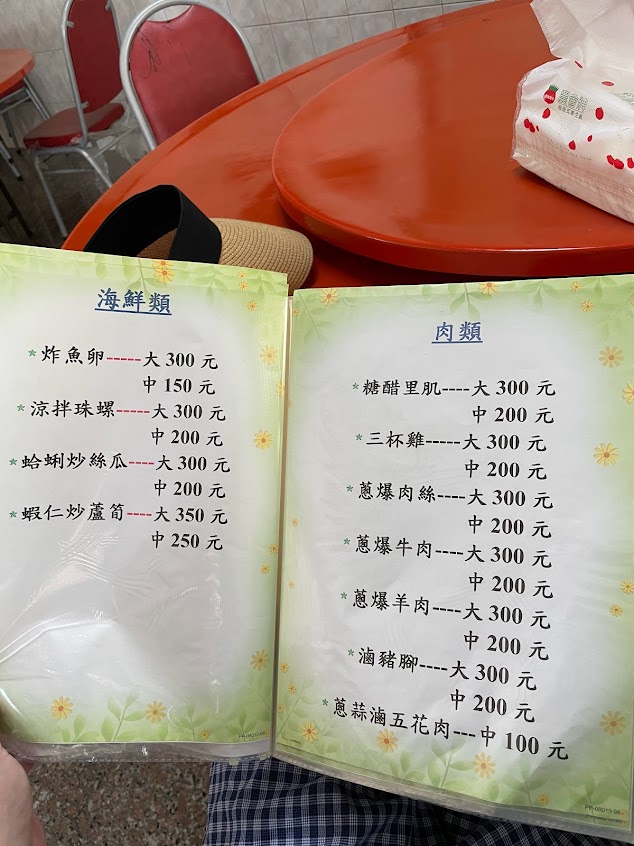 海鮮類
*炸魚卵-----大 300 元
中 150 元
*涼拌珠螺-----大 300 元
中 200 元
*蛤蜊炒絲瓜----大 300 元
中 200 元
*蝦仁炒蘆筍----大 350 元
中 250 元
肉類
*糖醋里肌----大 300 元
中 200 元
*三杯雞-----大 300 元
中 200 元
*蔥爆肉絲----大 300 元
中 200 元
*蔥爆牛肉----大 300 元
中 200 元
*蔥爆羊肉----大 300 元
中 200 元
*滷豬腳----大 300 元
中 200 元
*蔥蒜滷五花肉---中 100 元